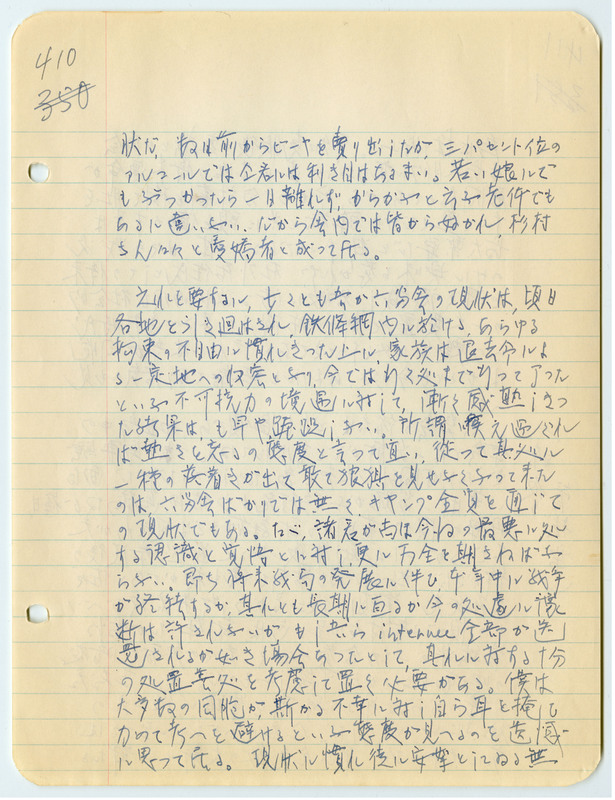 410
350
状だ、数日前からビーヤを賣り出したが、三パセント位の
アルコールでは企老には利き目はあるまい。若い娘にで
もぶつかったら一日離れず、からかふと云ふ老件でも
あるに違いない、だから舎内では皆から好かれ、杉村
さんなぞと愛嬌者と成って居る。
之れを要するに、少くとも吾が六労舎の現状は、頃日
各地と引き廻はされ、鉄條網内に於ける、あらゆる
拘束の不自由に慣れきった上に、家族は退去令によ
る一定地への収容となり、今では行く処まで行って了った
といふ不可抗力の境遇に対して、漸く感熱しきつ
た結果は、も早や踌躇しない。所謂喉元過ぐれ
ば熱さを忘るの態度と言って宜い、従って其処に
一種の落着きが出て敢て狼狽を見せなくなって来た
のは、六労舎ばかりでは無く、キャンプ全員を通じて
の現状でもある。だが、諸君が尚ほ今后の最悪に処
する認識と覚悟とに対し、更に万全を期さねばな
らない。即ち将来戦局の発展に伴ひ、本年中に戦争
が終結するか、其れとも長期に亘るか今の処遽に談
断は許されないがもし吾ら internee 全部が送
還されるが如き場合あったとして、其れに対する十分
の処置善処を考慮して置く必要がある。僕は
大多数の同胞が、斯かる不幸に対し自ら耳を掩ひ
力めて考へを避けるといふ態度が見へるのを遺憾
に思って居る。現状に慣れ徒に安撃として居る無